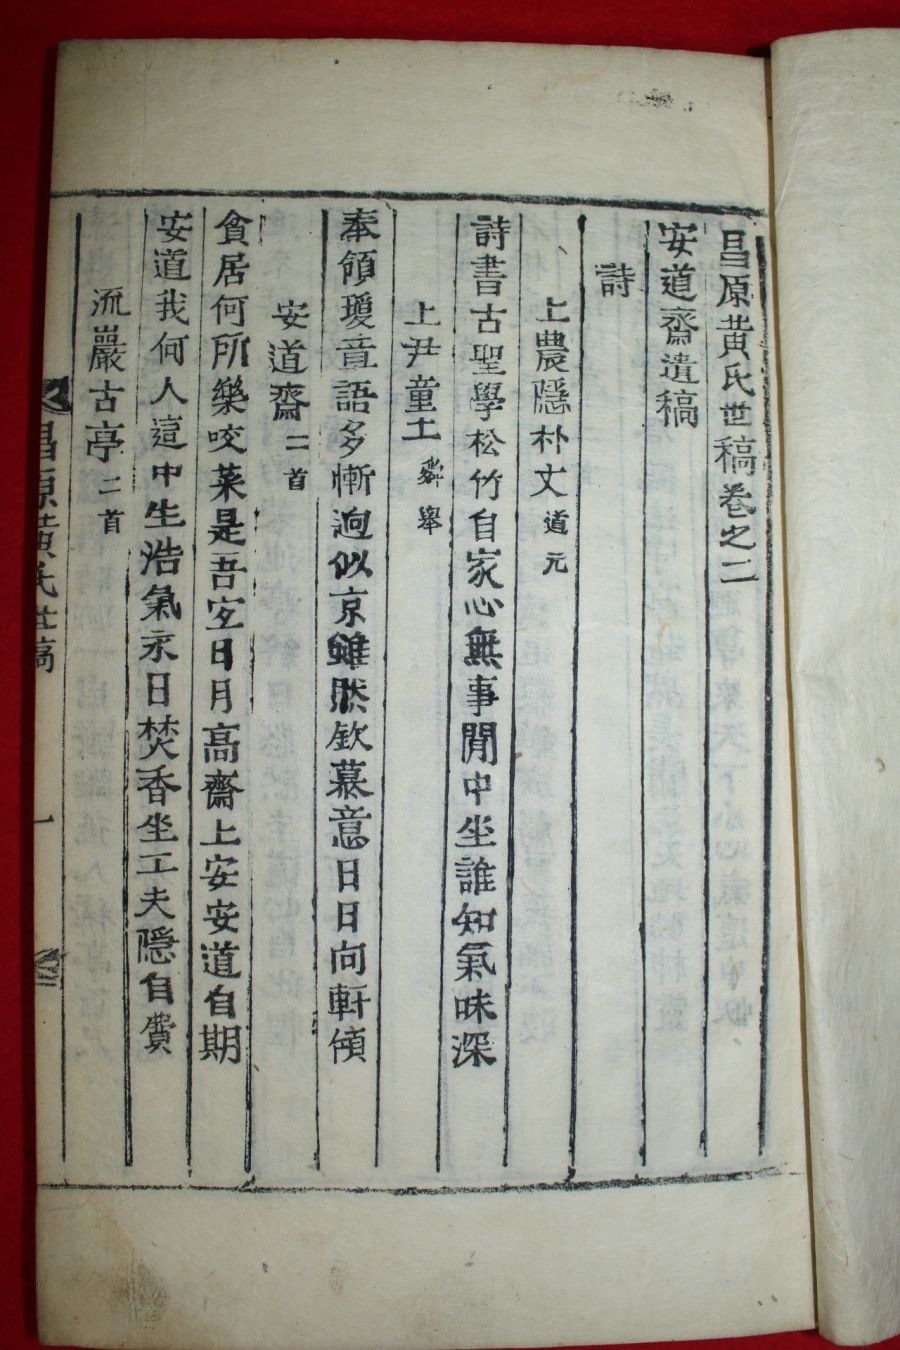 昌原黄氏世稿卷之二
安道齋遺稿
詩
上農隱朴丈道元
詩書古聖學松竹自家心無事閒中坐誰知氣味深
上尹童土舜擧
奉領瓊音語多慚逈似京雖然欽慕意日日向軒傾
安道齋二首
貪居何所樂咬菜是吾安日月高齋上安安道自期
安道我何人這中生浩氣永日焚香坐工夫隱自費
流巖古亭二首
昌原黄氏世稿
一